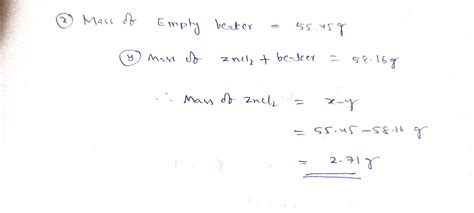 (x) Mass of Empty beaker = 55.45g
(y) Mass of zncl2 + beaker = 58.16g
∴ Mass of zncl2 = x-y
= 55.45-58.16 g
= 2.71g